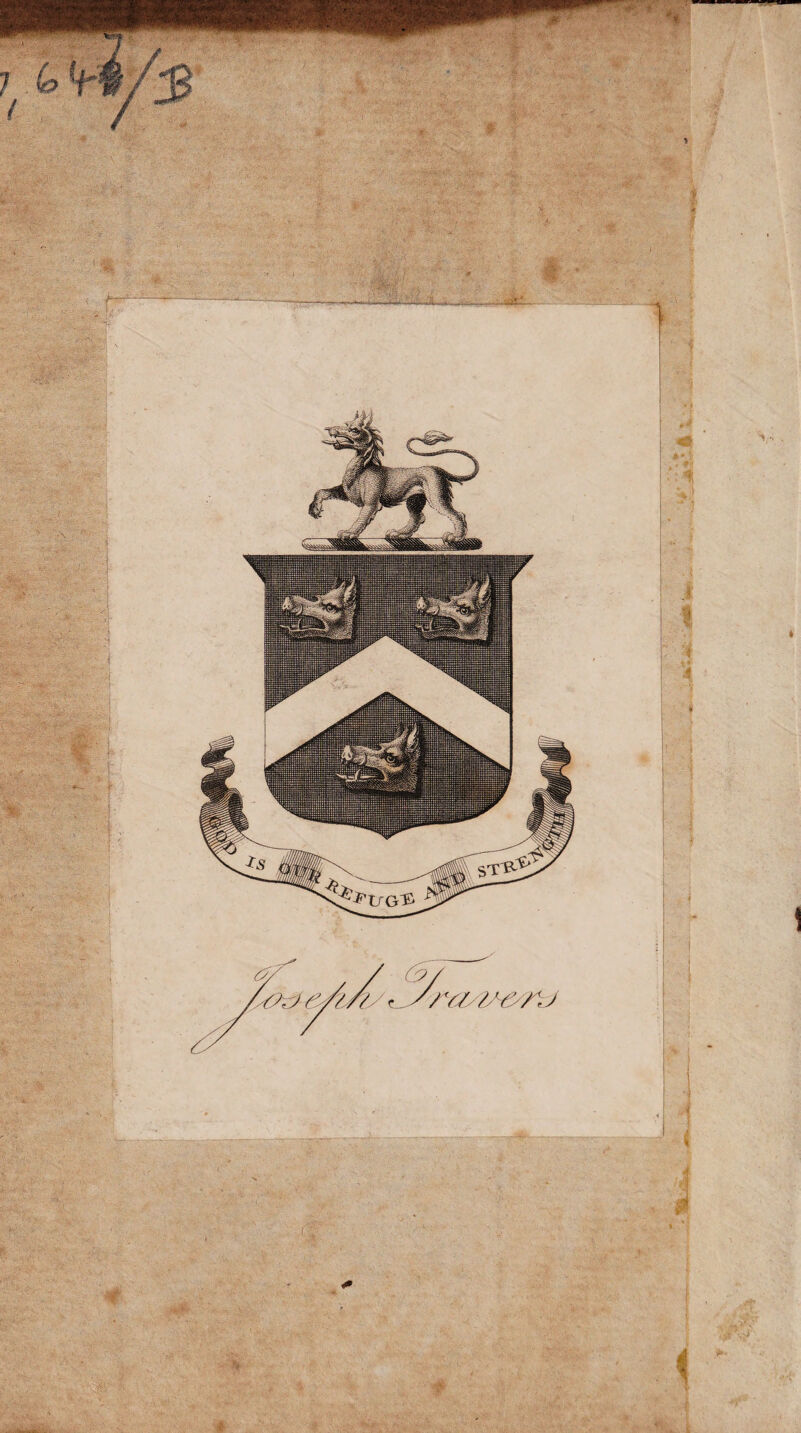 7,647/B
GOD IS OUR REFUGE AND STRENGTH
Joseph Travers